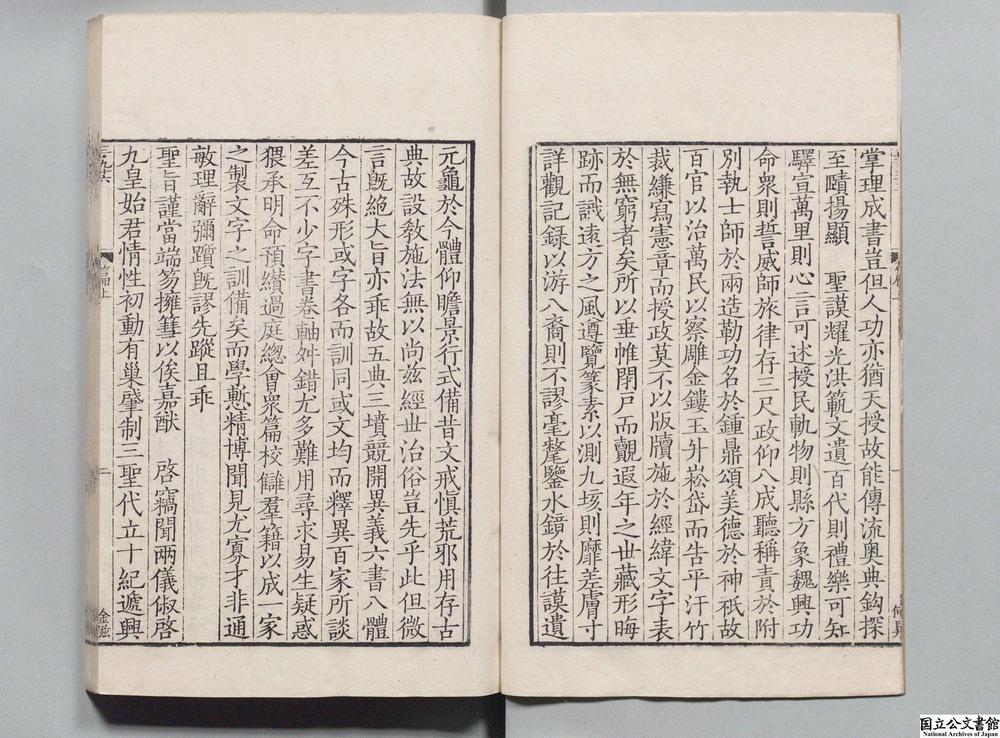 掌理成書豈但人功亦猶天授故能傳流奧典鈎探
至賾揚顯　聖謨耀光洪範文遺百代則禮樂可知
驛宣萬里則心言可述授民軌物則縣方象魏興功
命衆則誓威師旅律存三尺政仰八成聽稱責於附
別執士師於兩造勒功名於鍾鼎頌美德於神祇故
百官以治萬民以察雕金鏤玉升崧岱而告平汗竹
裁縑寫憲章而授政莫不以版牘施於經緯文字表
於無窮者矣所以垂帷閉戶而覿遐年之世藏形晦
跡而識遠方之風遵覽篆素以測九垓則靡差膚寸
詳觀記録以游八裔則不謬毫釐鑒水鏡於往謨遺
元龜於今體仰瞻景行式備昔文戒慎荒邪用存古
典故設教施法無以尚兹經世治俗豈先乎此但微
言旣絶大旨亦乖故五典三墳競開異義六書八體
今古殊形或字各而訓同或文均而釋異百家所談
差互不少字書卷軸舛錯尤多難用尋求易生疑惑
猥承明命預纘過庭總會衆篇校讎羣籍以成一家
之製文字之訓備矣而學慙精博聞見尤寡才非通
敏理辭彌躓旣謬先蹤且乖
聖旨謹當端笏擁篲以俟嘉猷　啓竊聞兩儀俶啓
九皇始君情性初動有巢肇制三聖代立十紀遞興